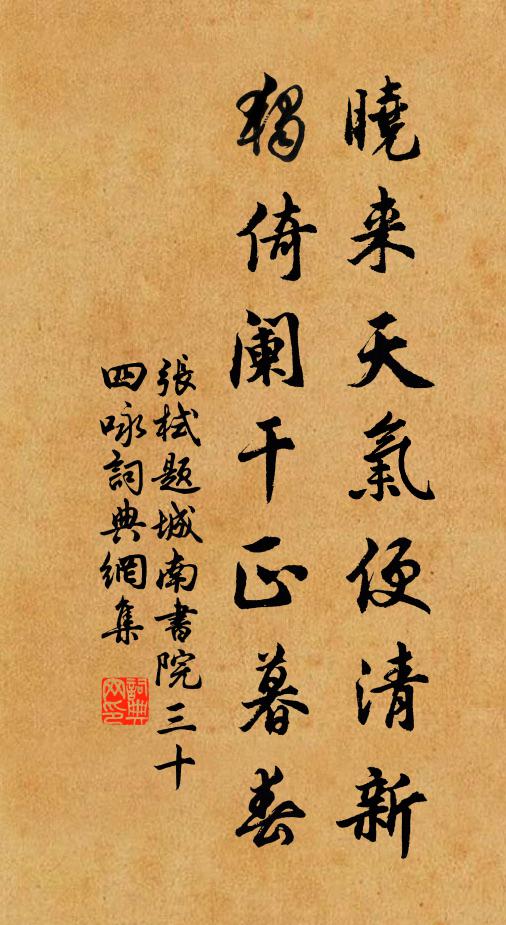 曉来天氣便清新
獨倚阑干正暮春
張栻题城南書院三十
四咏詞典網集
詞典
网印